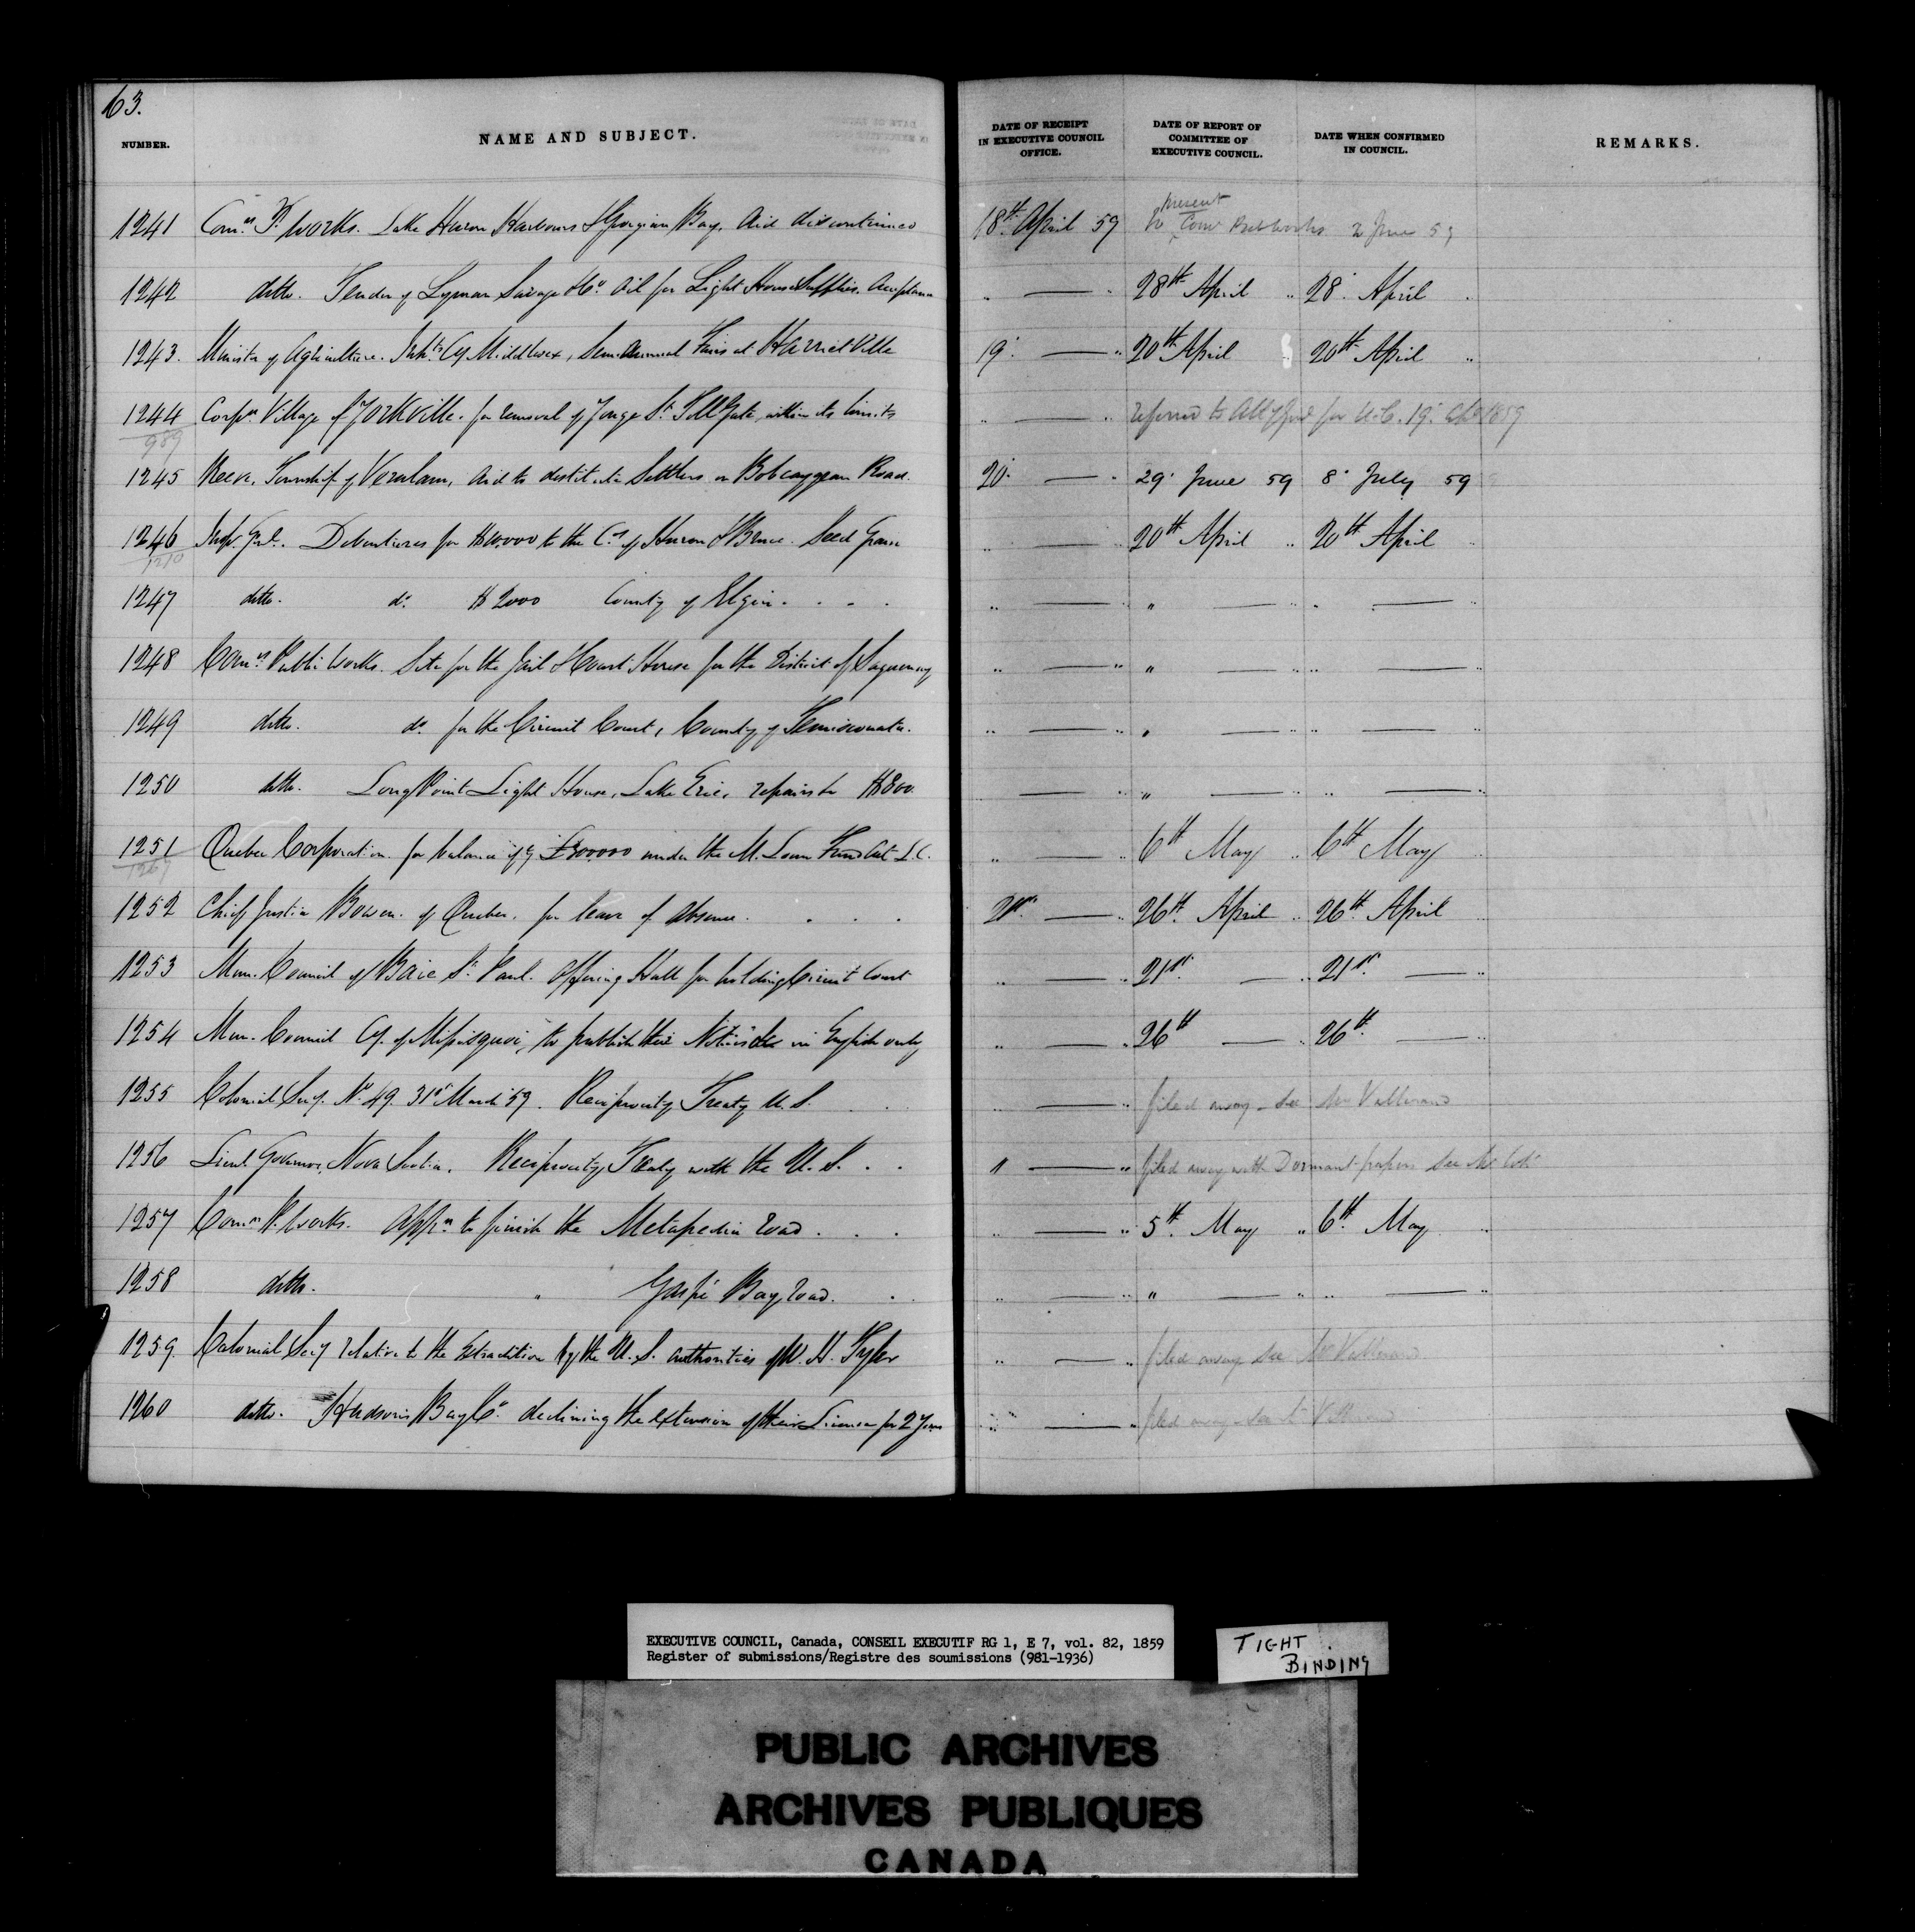 63.
NUMBER. NAME AND SUBJECT. DATE OF RECEIPT IN EXECUTIVE COUNCIL OFFICE. DATE OF REPORT OF COMMITTEE OF EXECUTIVE COUNCIL. DATE WHEN CONFIRMED IN COUNCIL. REMARKS.
1241 Com.rs P. Works. Lake Huron Harbours & Georgian Bay, Aid discontinued 18th April 59 to present Com Pub Works 2 June 59
1242 ditto. Tender of Lyman Savage & Co. Oil for Light House Supplies. Acceptance " — " 28th April " 28. April "
1243. Minister of Agriculture. Inhts Cy Middlesex, Semi annual Fairs at Harriet Ville 19. — " 20th April " 20th April "
1244 Corpn Village of Yorkville. for removal of Yonge St. Toll Gate, within its limits " — " referred to Atty Genl for U.C. 19. Apl 1859
989
1245 Reeve, Township of Verulam, Aid to destitute Settlers on Bobcaygean Road. 20. — " 29. June 59 8. July 59
1246 Insp. Genl. Debentures for $10,000 to the Cos of Huron & Bruce. Seed Grain " — " 20th April " 20th April "
1210
1247 ditto. do. $2000 County of Elgin. . . . " — " " — " " — "
1248 Comrs Public Works. Site for the Jail & Court House for the District of Saguenay " — " " — " " — "
1249 ditto. do. for the Circuit Court, County of Temiscouata. " — " " — " " — "
1250 ditto. Long Point Light House, Lake Erie, repairs to $800. " — " " — " " — "
1251 Quebec Corporation. for balance of £300000 under the M. Loan Fund Act L.C. " — " 6th May " 6th May "
1261
1252 Chief Justice Bowen. of Quebec. for leave of absence. . . . 21st. — " 26th April " 26th April "
1253 Mun. Council of Baie St. Paul. Offering Hall for holding Circuit Court " — " 21st. — " 21st. — "
1254 Mun. Council Cy. of Missisquoi, to publish their Notices &c in English only " — " 26th — " 26th. — "
1255 Colonial Secy. No. 49. 31st March 59. Reciprocity Treaty U.S. " — " filed away - see Mr Vallerand
1256 Lieut Governor, Nova Scotia. Reciprocity Treaty with the U.S. . . " — " filed away with Dormant papers See Mr Coté
1257 Comrs P. Works. Appn to finish the Metapedia Road . . . " — " 5th. May " 6th. May "
1258 ditto. " Gaspé Bay Road. . . " — " " — " " — "
1259. Colonial Secy relative to the Extradition by the U.S. authorities of W. H. Tyler " — " filed away see Mr Vallerand
1260 ditto. Hudson's Bay Co. declining the extension of their License for 2 Years " — " filed away
EXECUTIVE COUNCIL, Canada, CONSEIL EXECUTIF RG 1, E 7, vol. 82, 1859
Register of submissions/Registre des soumissions (981-1936)
TIGHT BINDING
PUBLIC ARCHIVES
ARCHIVES PUBLIQUES
CANADA